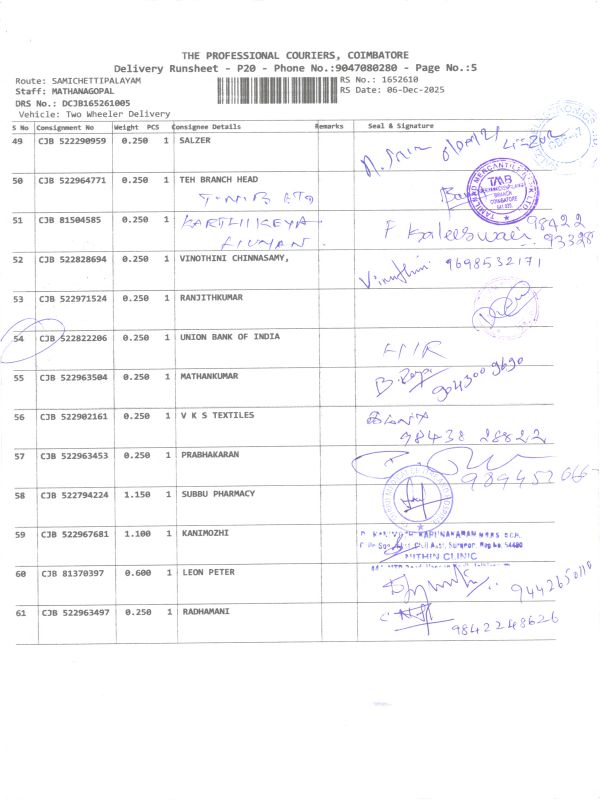 THE PROFESSIONAL COURIERS, COIMBATORE
Delivery Runsheet - P20 - Phone No.:9047080280 - Page No.:5
Route: SAMICHETTIPALAYAM RS No.: 1652610
Staff: MATHANAGOPAL RS Date: 06-Dec-2025
DRS No.: DCJB165261005
Vehicle: Two Wheeler Delivery
S No Consignment No Weight PCS Consignee Details Remarks Seal & Signature
49 CJB 522290959 0.250 1 SALZER
50 CJB 522964771 0.250 1 TEH BRANCH HEAD
TAMILNAD MERCANTILE BANK LTD
TMB
BRANCH
COIMBATORE
51 CJB 81504585 0.250 1 KARTHIKEYA
F Kaleeswari 98422
93328
52 CJB 522828694 0.250 1 VINOTHINI CHINNASAMY,
Vinothini 9698532171
53 CJB 522971524 0.250 1 RANJITHKUMAR
54 CJB 522822206 0.250 1 UNION BANK OF INDIA
55 CJB 522963504 0.250 1 MATHANKUMAR
904300 9690
56 CJB 522902161 0.250 1 V K S TEXTILES
98438 28822
57 CJB 522963453 0.250 1 PRABHAKARAN
58 CJB 522794224 1.150 1 SUBBU PHARMACY
59 CJB 522967681 1.100 1 KANIMOZHI
NITHIN CLINIC
60 CJB 81370397 0.600 1 LEON PETER
9442650110
61 CJB 522963497 0.250 1 RADHAMANI
9842248626